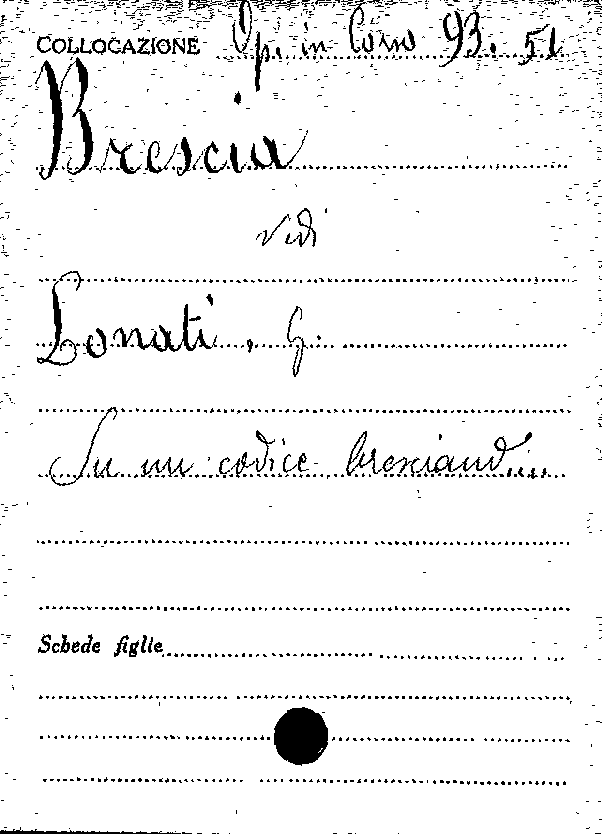 COLLOCAZIONE Op. in Corso 93. 51
Brescia
vidi
Lonati, G.
Su un codice bresciano...
Schede figlie